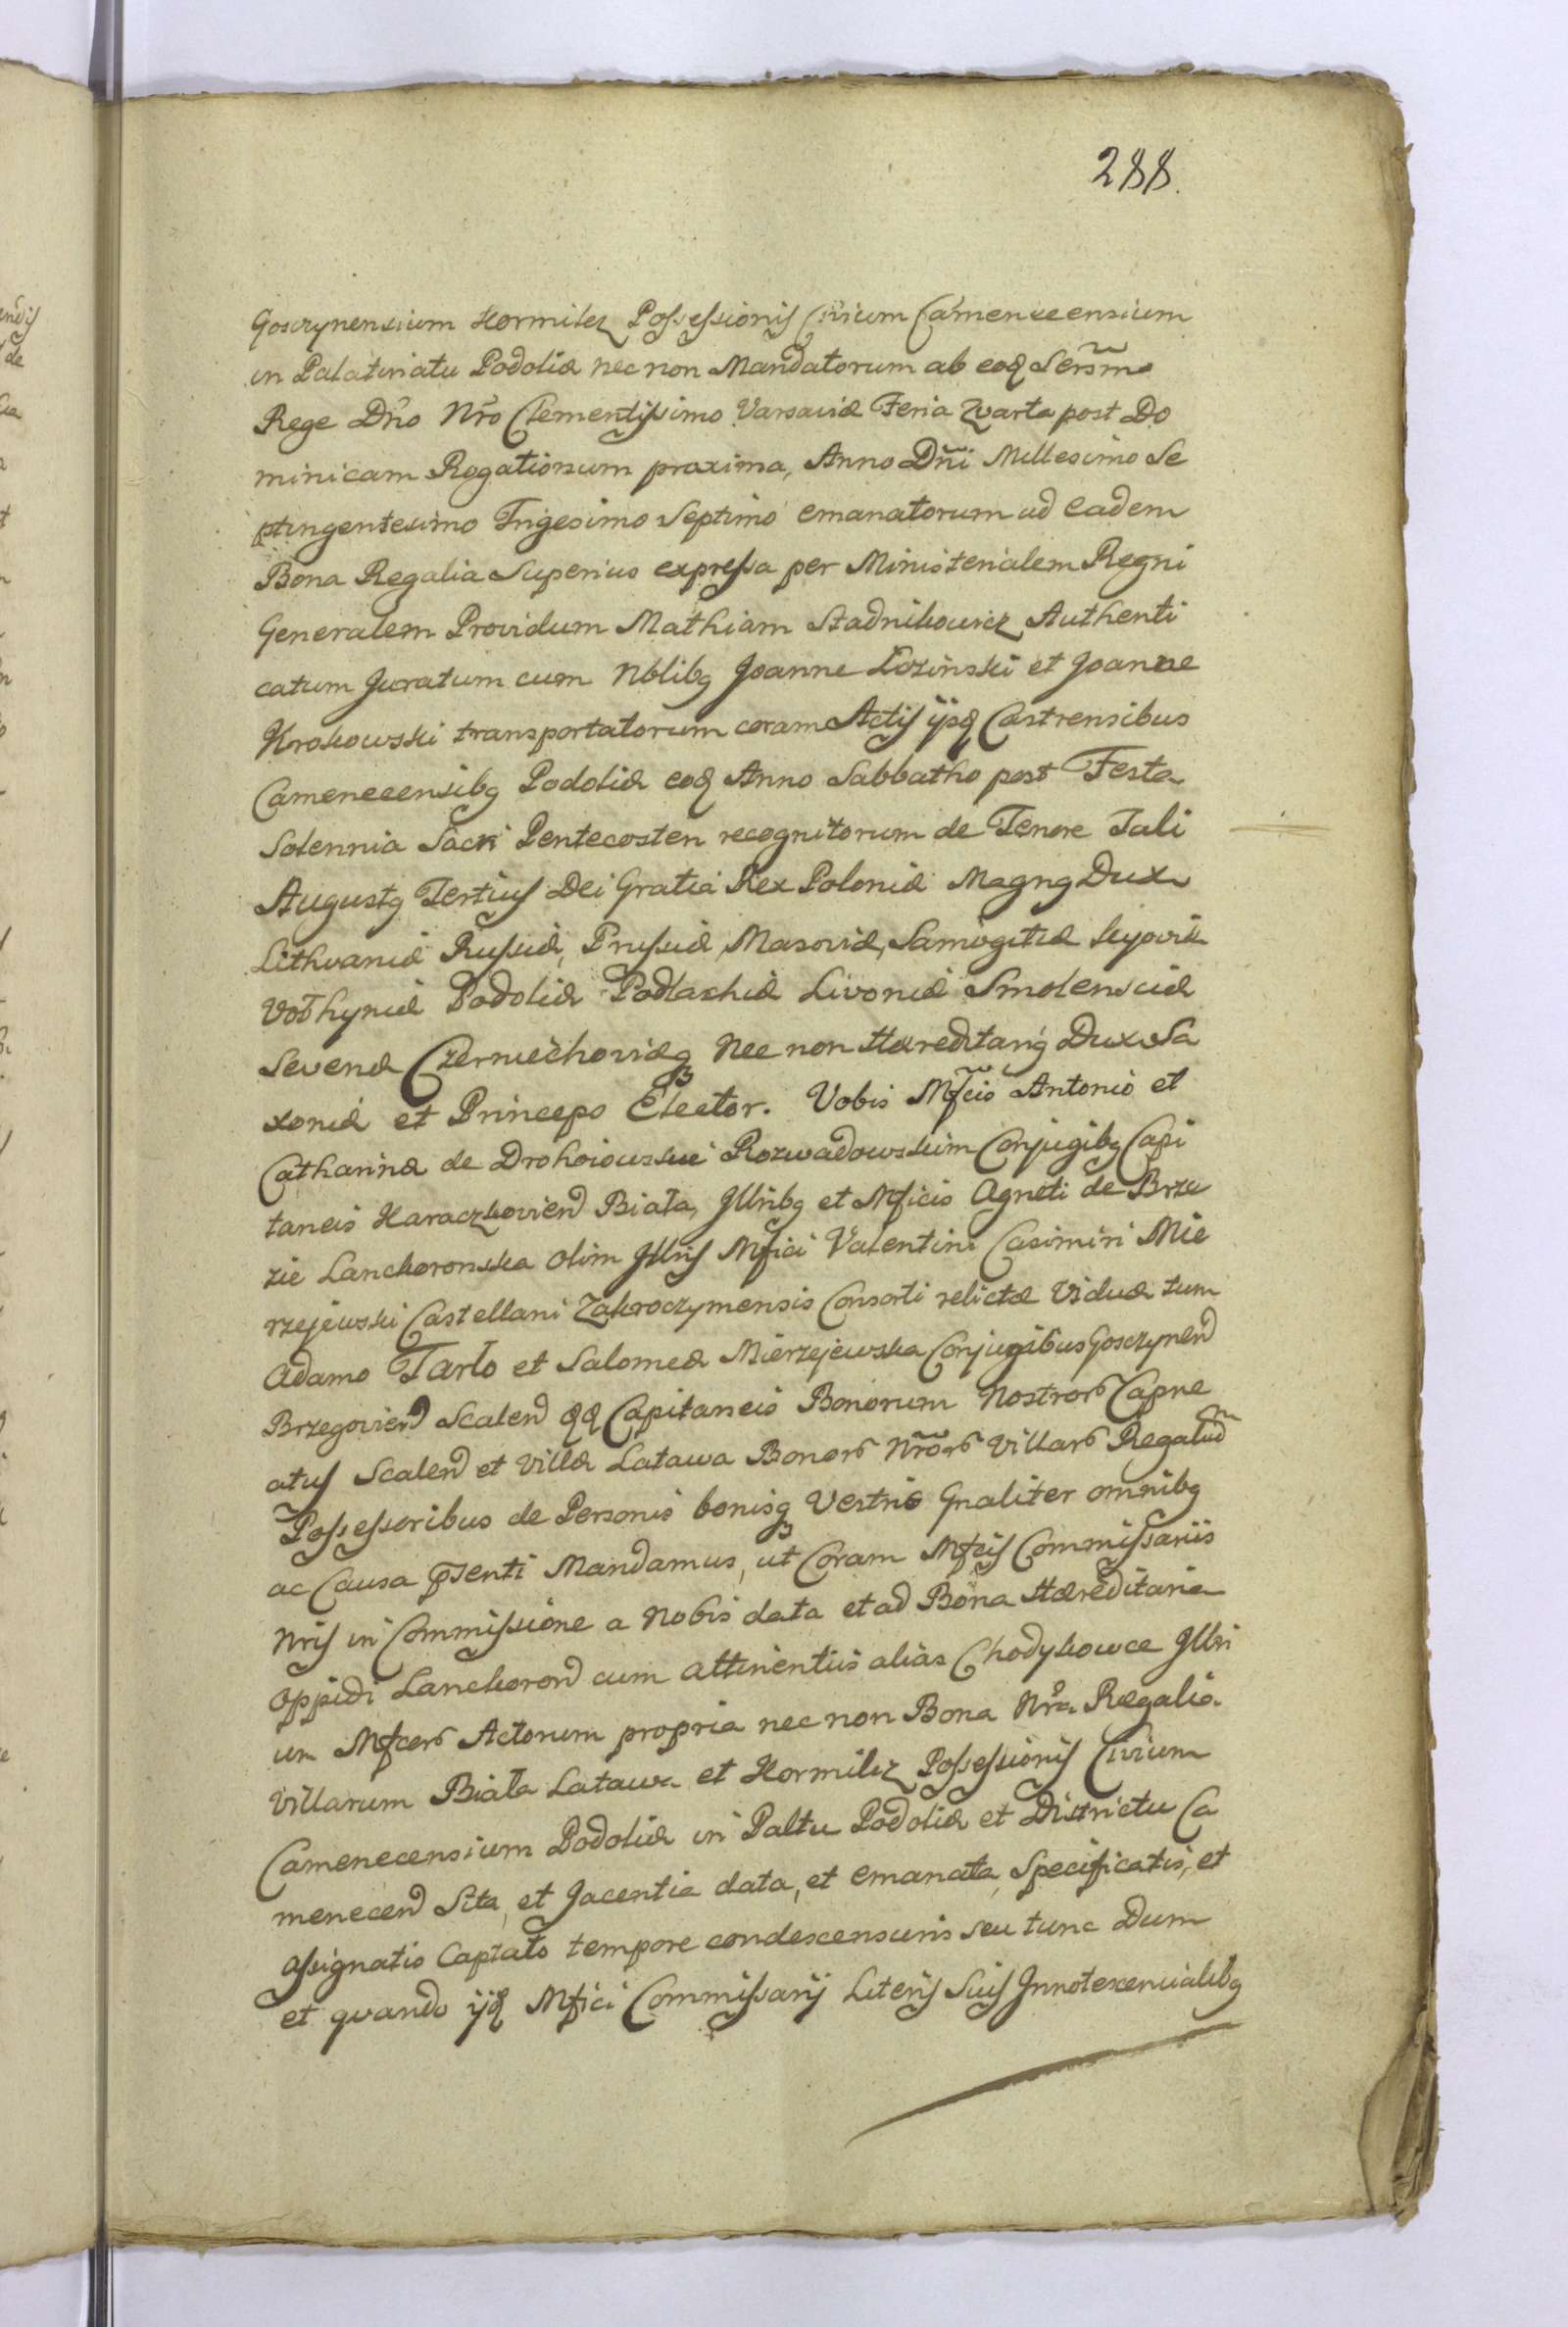 288.
Goszynensium Hormilez Possessionis Civium Camenecensium
in Palatinatu Podoliæ nec non Mandatorum ab eoq Serm̃o
Rege Dño Nr̃o Clementissimo Varsaviæ Feria Qvarta post Do
minicam Rogationum proxima, Anno Dñi Millesimo Se
ptingentesimo Trigesimo Septimo emanatorum ad eadem
Bona Regalia Superius expressa per Ministerialem Regni
Generalem Providum Mathiam Stadnikowicz Authenti
catum Juratum cum Nblibg Joanne Łozinski et Joanne
Krokowski transportatorum coram Actis ijsq Castrensibus
Camenecensibg Podoliæ eoq Anno Sabbatho post Festa
Solennia Sacri Pentecosten recognitorum de Tenore Tali
Augustg Tertius Dei Gratia Rex Poloniæ Magng Dux
Lithvaniæ Russiæ, Prussiæ, Masoviæ, Samogitiæ Kijoviæ
Volhyniæ Podoliæ Podlachiæ Livoniæ Smolensciæ
Severiæ Czerniechoviæq Nec non Hæreditarig Dux Sa
xoniæ et Princeps Elector. Vobis Mfcis Antonio et
Catharinæ de Drohoiowskie Rozwadowskim Conjugibg Capi
taneis Haraczkovien Biała, Jllribg et Mficis Agneti de Brze
zie Lanckoronska olim Jllris Mfici Valentini Casimiri Mie
rzejewski Castellani Zakroczymensis Consorti relictæ Viduæ tum
Adamo Tarło et Salomeæ Mierzejewska Conjugibus Goszynen
Brzegovien Scalen qq Capitaneis Bonorum Nostror Capne
atus Scalen et Villæ Latawa Bonor Nr̃or Villar Regaliu͂m
Possessoribus de Personis bonisq Vestris Gnaliter omnibg
ac Causa pſenti Mandamus, ut Coram Mfcis Commissariis
Nris in Commissione a Nobis data et ad Bona Hæreditaria
Oppidi Lanckoron cum attinentiis alias Chodykowce Jllri
um Mfcor Actorum propria nec non Bona Nra Regalia
Villarum Biała Latawa et Hormilez Possessionis Civium
Camenecensium Podoliæ in Paltu Podoliæ et Districtu Ca
menecen Sita, et Jacentia data, et emanata, Specificatis, et
assignatis Captato tempore condescensuris seu tunc Dum
et qvando ijq Mfici Commissarij Literis Suis Jnnotescencialibg